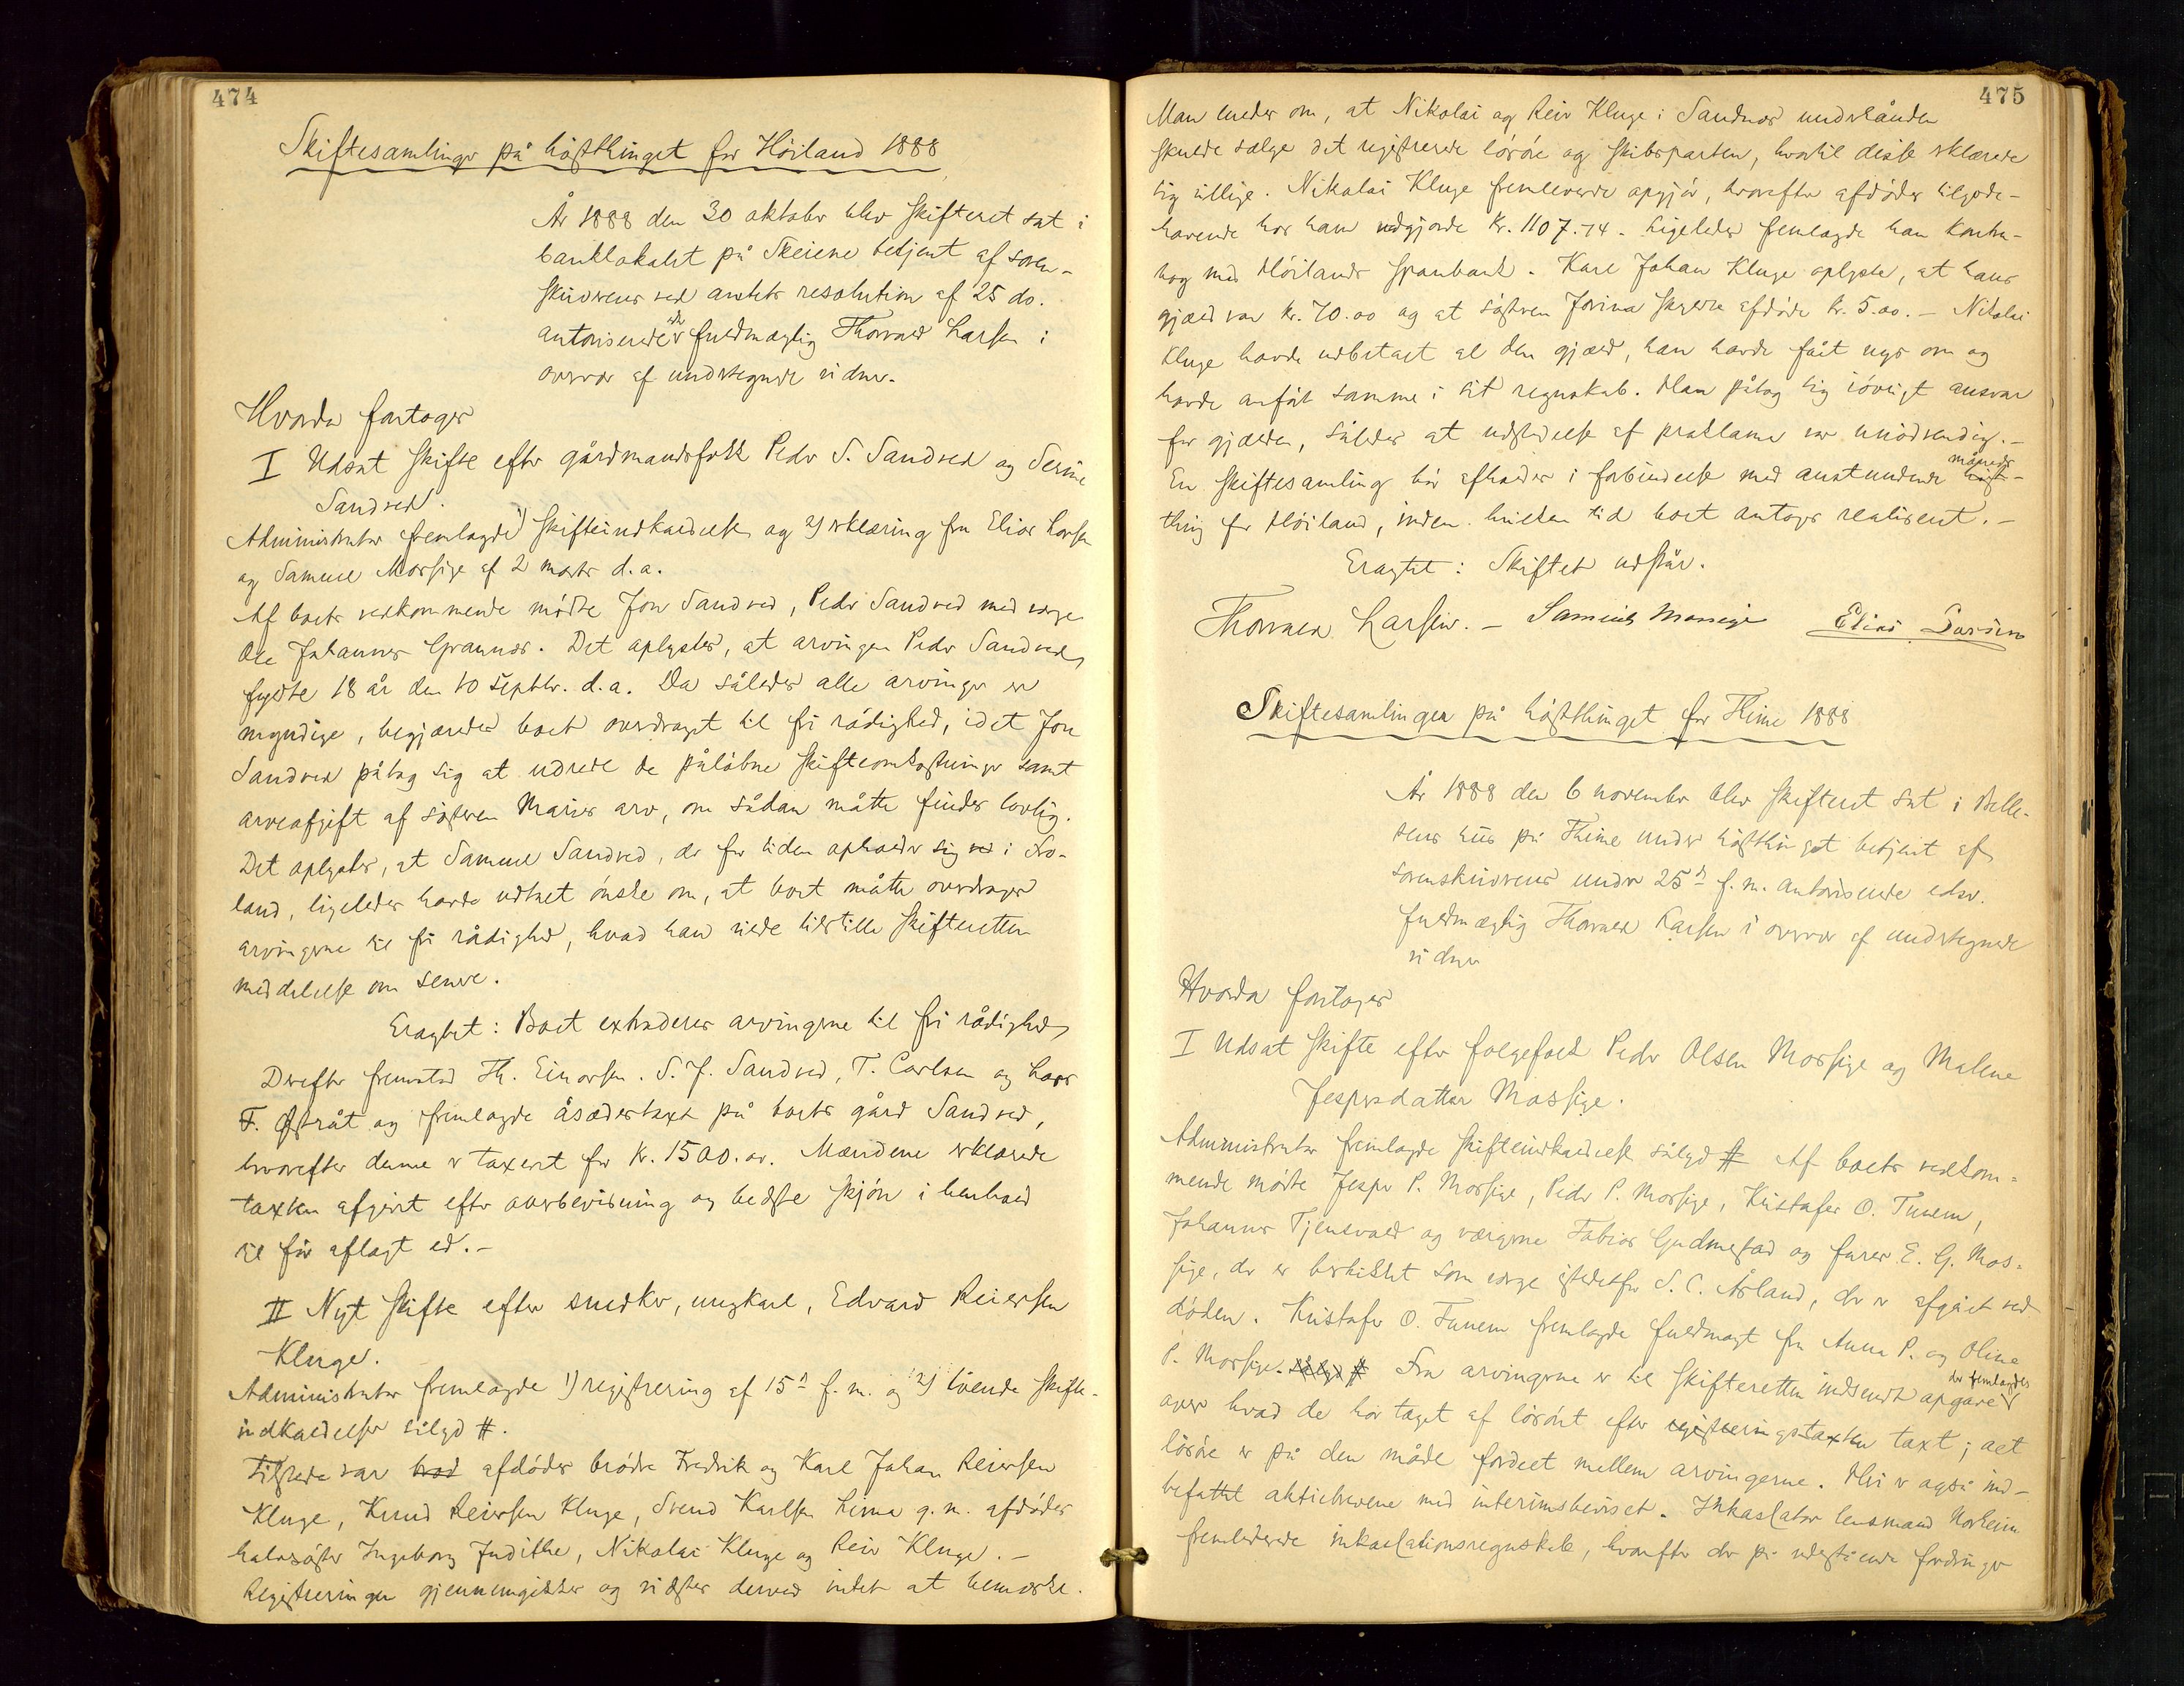 474
Skiftesamlinger på høstthinget for Høiland 1888
År 1888 den 30 oktober blev skifteret sat i
banklokalet på Skeiene betjent af soren-
skriveren ved amtets resolution af 25 ds.
autoriserede edsv fuldmægtig Thorvald Larsen i
overvær af undertegnede vidner.
Hvorda foretoges
I Udsat skifte efter gårdmandsfolk Peder S. Sandved og Serine
Sandved.
Administrator fremlagde 1) skifteindkaldelse og 2) erklæring fra Elias Larsen
og Samuel Mossige af 2 marts d.a.
Af boets vedkommende mødte Jon Sandved, Peder Sandved med verge
Ole Johannes Grannes. Det oplystes, at arvingen Peder Sandved
fyldte 18 år den 10 septbr. d.a. Da således alle arvinger er
myndige, begjæredes boet overdraget til fri rådighed, idet Jon
Sandved påtog sig at udrede de påløbne skifteomkostninger samt
arveafgift af søsteren Maries arv, om sådan måtte findes lovlig.
Det oplystes, at Samuel Sandved, der for tiden opholder sig ved i So-
land, ligeledes havde udtalt ønske om, at boet måtte overdrages
arvingerne til fri rådighed, hvad han vilde tilstille skifteretten
meddelelse om senere.
Eragtet: Boet extraderes arvingerne til fri rådighed
Derefter fremstod Th. Einarsen, S. J. Sandved, T. Carlsen og Lars
T. Østråt og fremlagde åsædestaxt på boets gård Sandved,
hvorefter denne er taxeret for kr. 1500.00. Mændene erklærede
taxten afgivet efter overbevisning og bedste skjøn i henhold
til før aflagt ed.-
II Nyt skifte efter snedker, ungkarl, Edvard Reiersen
Kluge.
Administrator fremlagde 1) registrering af 15de f.m. og 2) tvende skifte-
indkaldelser sålyd #.
Tilstede var hvad afdødes brødre Fredrik og Karl Johan Reiersen
Kluge, Knud Reiersen Kluge, Svend Karlsen Lima g.m. afdødes
halvsøster Ingeborg Judithe, Nikolai Kluge og Reier Kluge.-
Registreringen gjennemgikkes og vidstes derved intet at bemærke.
475
Man enedes om, at Nikolai og Reier Kluge i Sandnes underhånden
skulde sælge det registrerede løsøre og skibsparten, hvortil disse erklærede
sig villige. Nikolai Kluge fremleverede opgjør, hvorefter afdødes tilgode-
havende hos ham udgjorde Kr. 1107.74. Ligeledes fremlagde han Kontra-
bog med Høilands sparebank. Karl Johan Kluge oplyste, at hans
gjæld var kr. 70.00 og at søsteren Jorina skyldte afdøde kr. 5.00.- Nikolai
Kluge havde udbetalt al den gjæld, han havde fåt nys om og
havde anført samme i sit regnskab. Han påtog sig iøvrigt ansvar
for gjælden, således at udstedelse af proklama var unødvendig.-
En skiftesamling bør afholdes i forbindelse med anstundende høst- måneds
thing for Høiland, inden hvilken tid boet antoges realiseret.-
Eragtet: Skiftet udstår.
Thorvald Larsen.- Samuel Mossige Elias Larsen
Skiftesamlingen på høstthinget for Thime 1888
År 1888 den 6 november blev skifteret sat i Belle-
sens hus på Thime under høstthinget betjent af
sorenskriverens under 25de f.m. autoriserede edsv.
fuldmægtig Thorvald Larsen i overvær af undertegnede
vidner
Hvorda foretoges
I Udsat skifte efter folgefolk Peder Olsen Mossige og Malene
Jespersdatter Mossige.
Administrator fremlagde skifteindkaldelse sålyd # Af boets vedkom-
mende mødte Jesper P. Mossige, Peder P. Mossige, Kristofer O. Tunem,
Johannes Tjensvold og vergerne Tobias Gudmestad og furer E. G. Mos-
sige, der er beskikket som verge istedetfor S. C. Årland, der er afgået ved
døden. Kristofer O. Tunem fremlagde fuldmagt fra Anna P. og Oline
P. Mossige. sålyd # Fra arvingerne er til skifteretten indsendt opgave der fremlagdes
over hvad de har taget af løsøret efter registreringstaxten taxt; alt
løsøre er på den måde fordelt mellem arvingerne. Heri er også ind-
befattet aktiebrevene med interimsbeviset. Inkassator lensmand Norheim
fremleverede inkassationsregnskab, hvorefter der på udestående fordringer